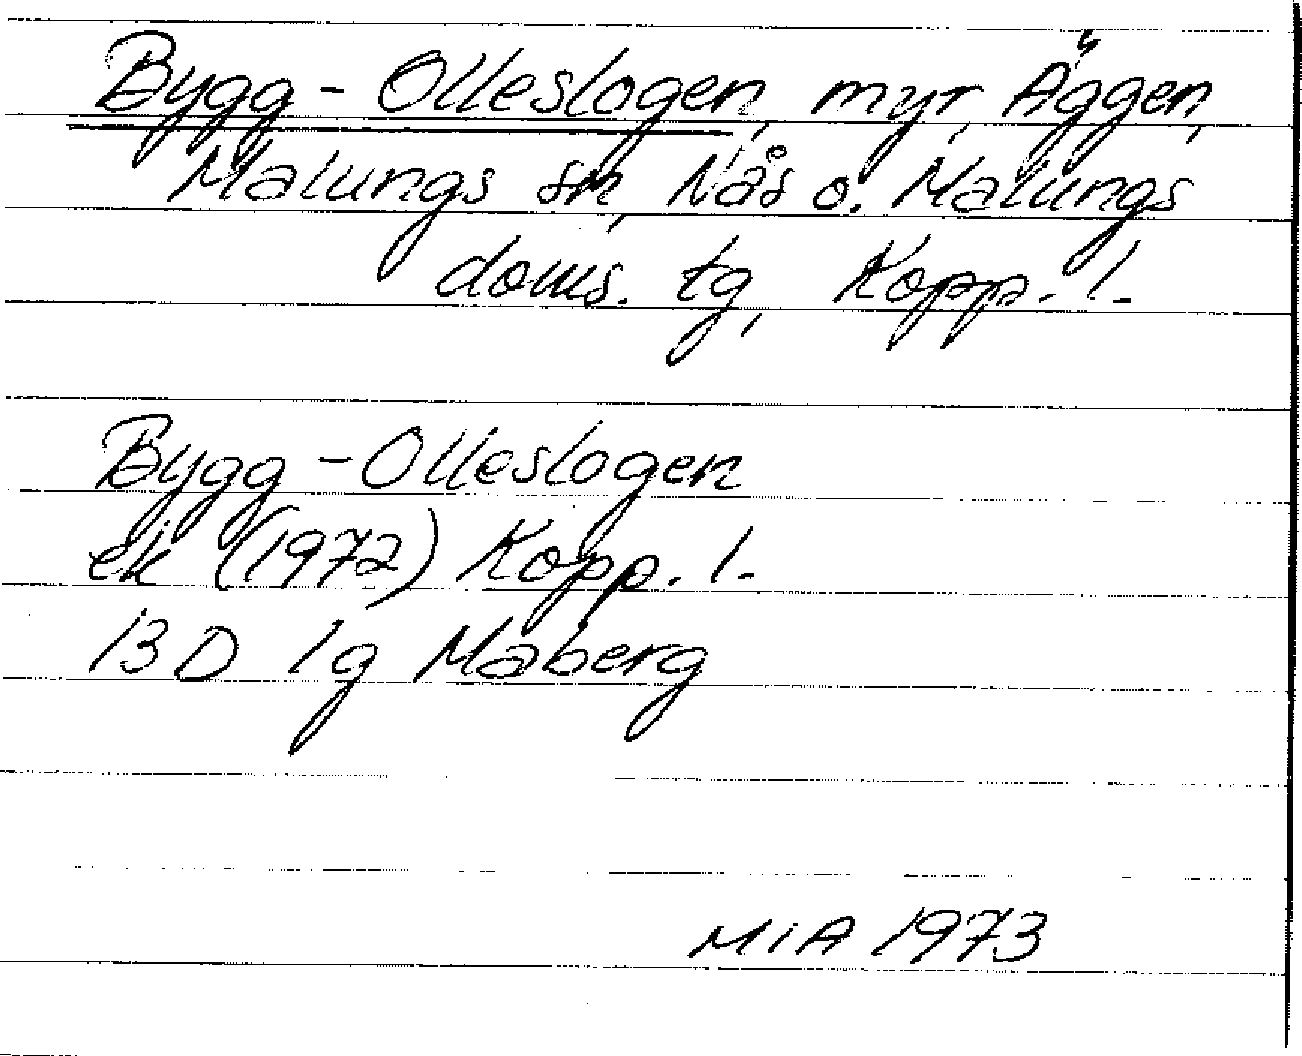 Bygg-Olleslogen, myr, Äggen,
Malungs sn, Nås o. Malungs
doms. tg, Kopp. l.
Bygg-Olleslogen
ek (1972) Kopp. l.
13 D 1g Maberg
MIA 1973